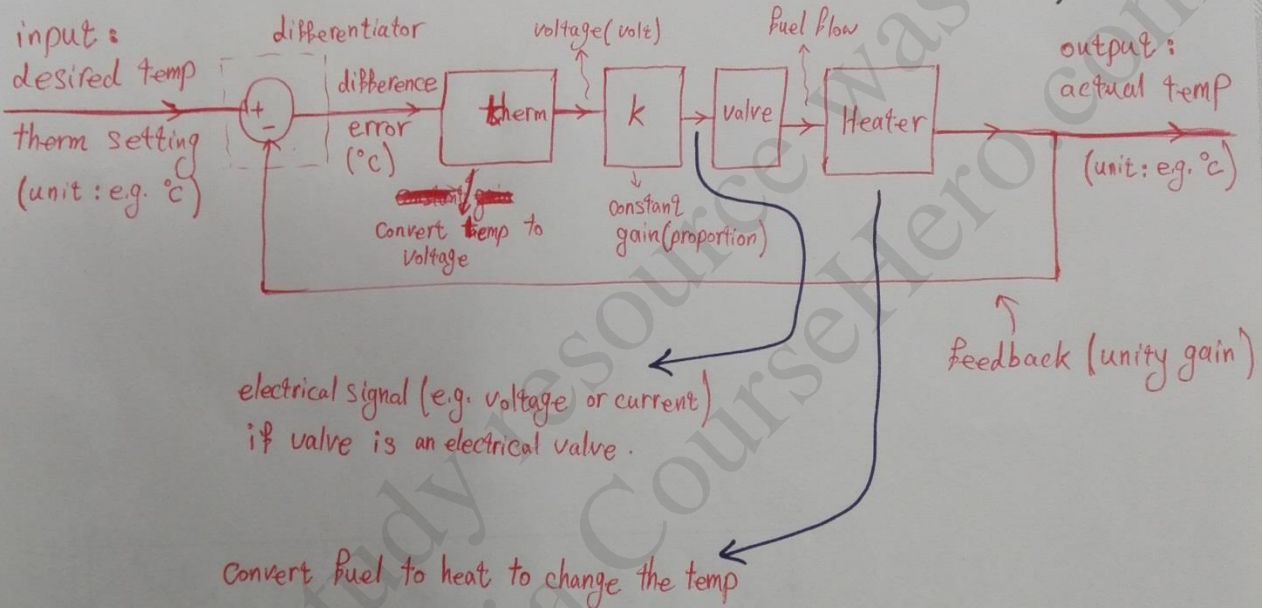 input :
desired temp
therm setting
(unit : e.g. °C)
differentiator
+
-
difference
error
(°C)
therm
convert temp to
voltage
voltage(volt)
k
constant
gain(proportion)
valve
fuel flow
Heater
output :
actual temp
(unit: e.g. °C)
feedback (unity gain)
electrical signal (e.g. voltage or current)
if valve is an electrical valve.
convert fuel to heat to change the temp
study resource was
via CourseHero.com